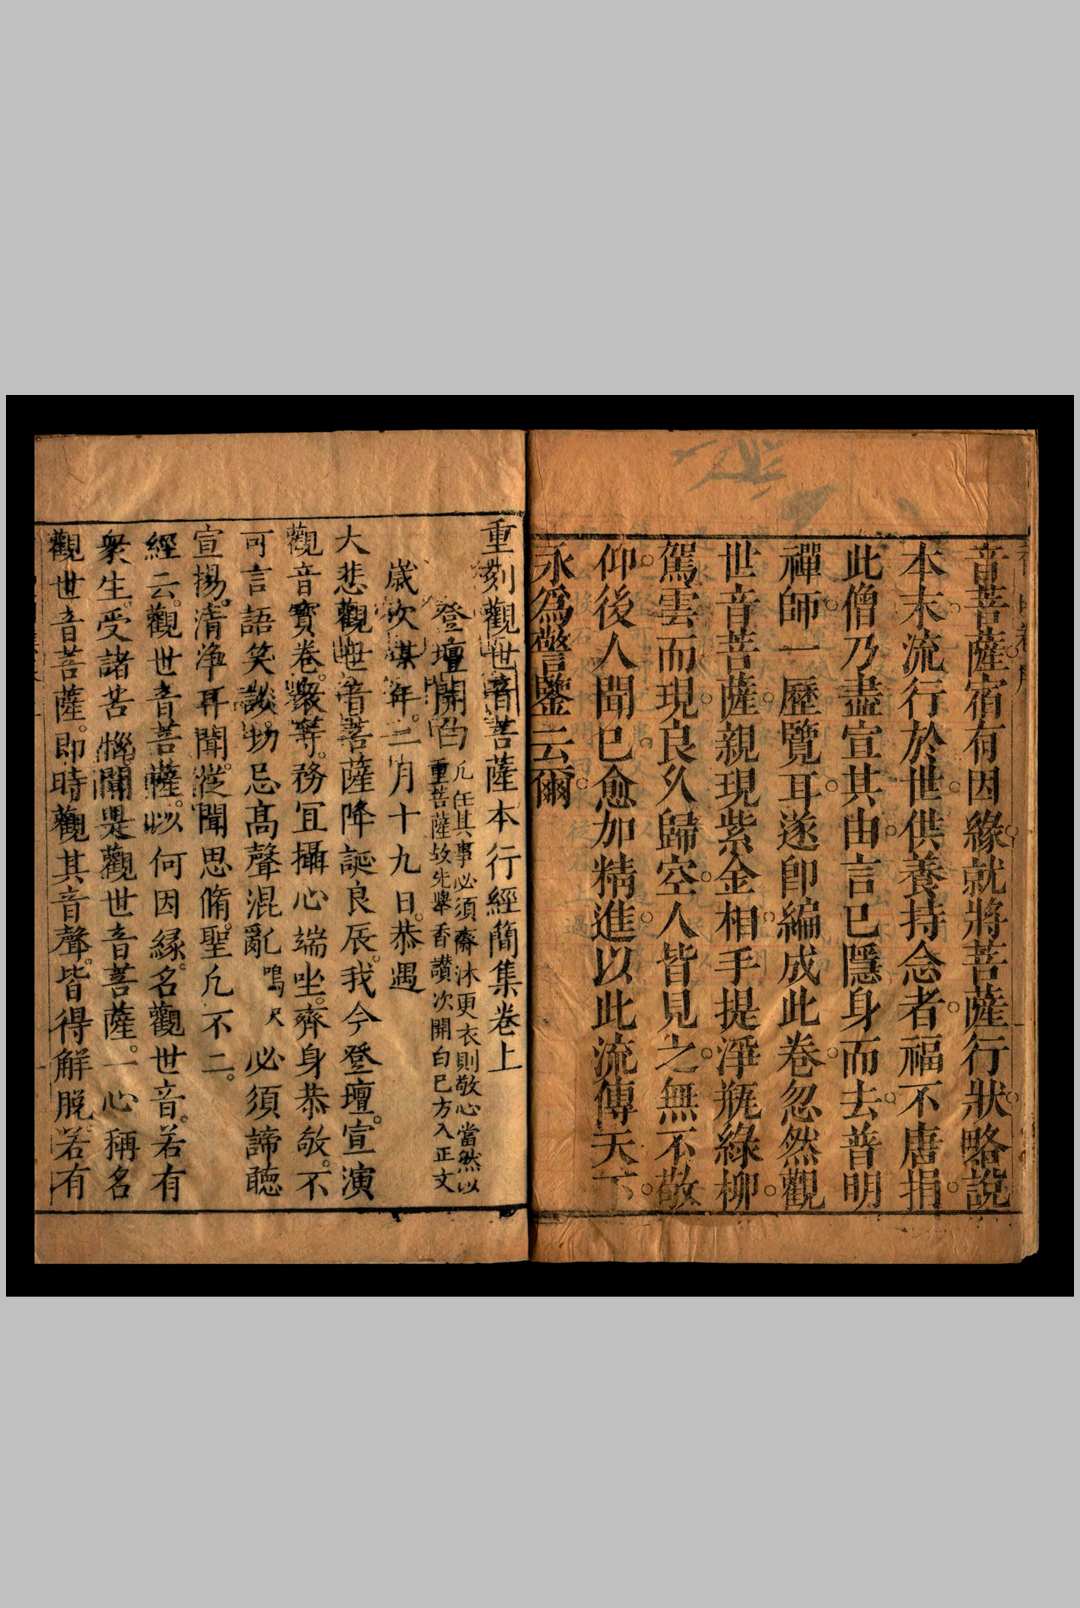 音菩薩。宿有因緣。就將菩薩行狀。略說
本末。流行於世。供養持念者。福不唐捐。
此僧乃盡宣其由。言已隱身而去。普明
禪師。一歷覽耳。遂即編成此卷。忽然觀
世音菩薩。親現紫金相。手提淨瓶綠柳。
駕雲而現。良久歸空。人皆見之。無不敬
仰。後人聞已。愈加精進。以此流傳天下。
永爲警鑒云爾。
重刻觀世音菩薩本行經簡集卷上
登壇開白
凡任其事必須齋沐更衣則敬心當然以
重菩薩故先舉香讚次開白已方入正文
歲次某年。二月十九日。恭遇
大悲觀世音菩薩降誕良辰。我今登壇。宣演
觀音寶卷。衆等。務宜攝心端坐。齊身恭敬。不
可言語笑談。切忌高聲混亂鳴尺必須諦聽
宣揚。清淨耳聞。從聞思脩。聖凡不二。
經云。觀世音菩薩。以何因緣。名觀世音。若有
衆生。受諸苦惱。聞是觀世音菩薩。一心稱名
觀世音菩薩。即時觀其音聲。皆得解脫。若有